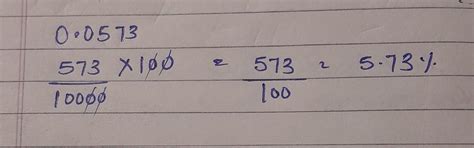 0.0573
573/10000 × 100 = 573/100 = 5.73%